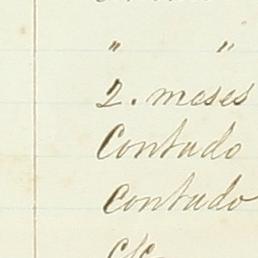 " "
2. meses
Contado
Contado
c/c.